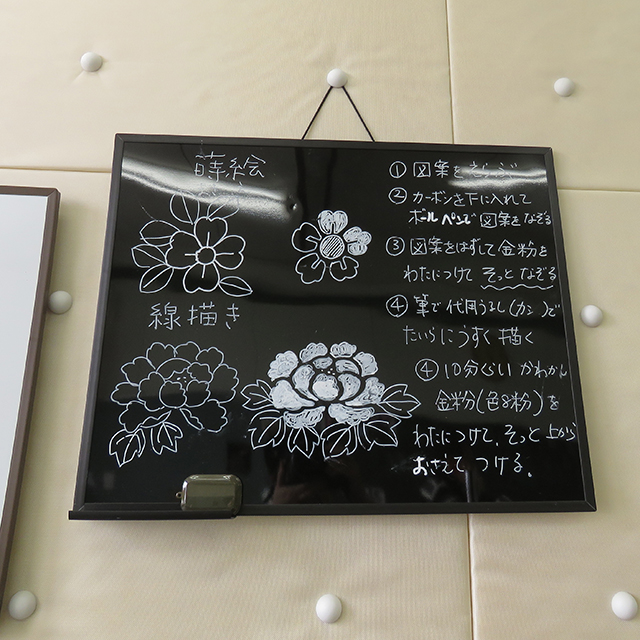 蒔絵
線描き
① 図案を
② カーボンを下に入れて
ボールペンで図案をなぞる
③ 図案をはずして金粉を
わたにつけて そっと なぞる
④ 筆で代用うるし(カシ)で
たいらにうすく描く
④ 10分ぐらい かわかし
金粉(色の粉)を
わたにつけて、そっと上から
おさえて つける。